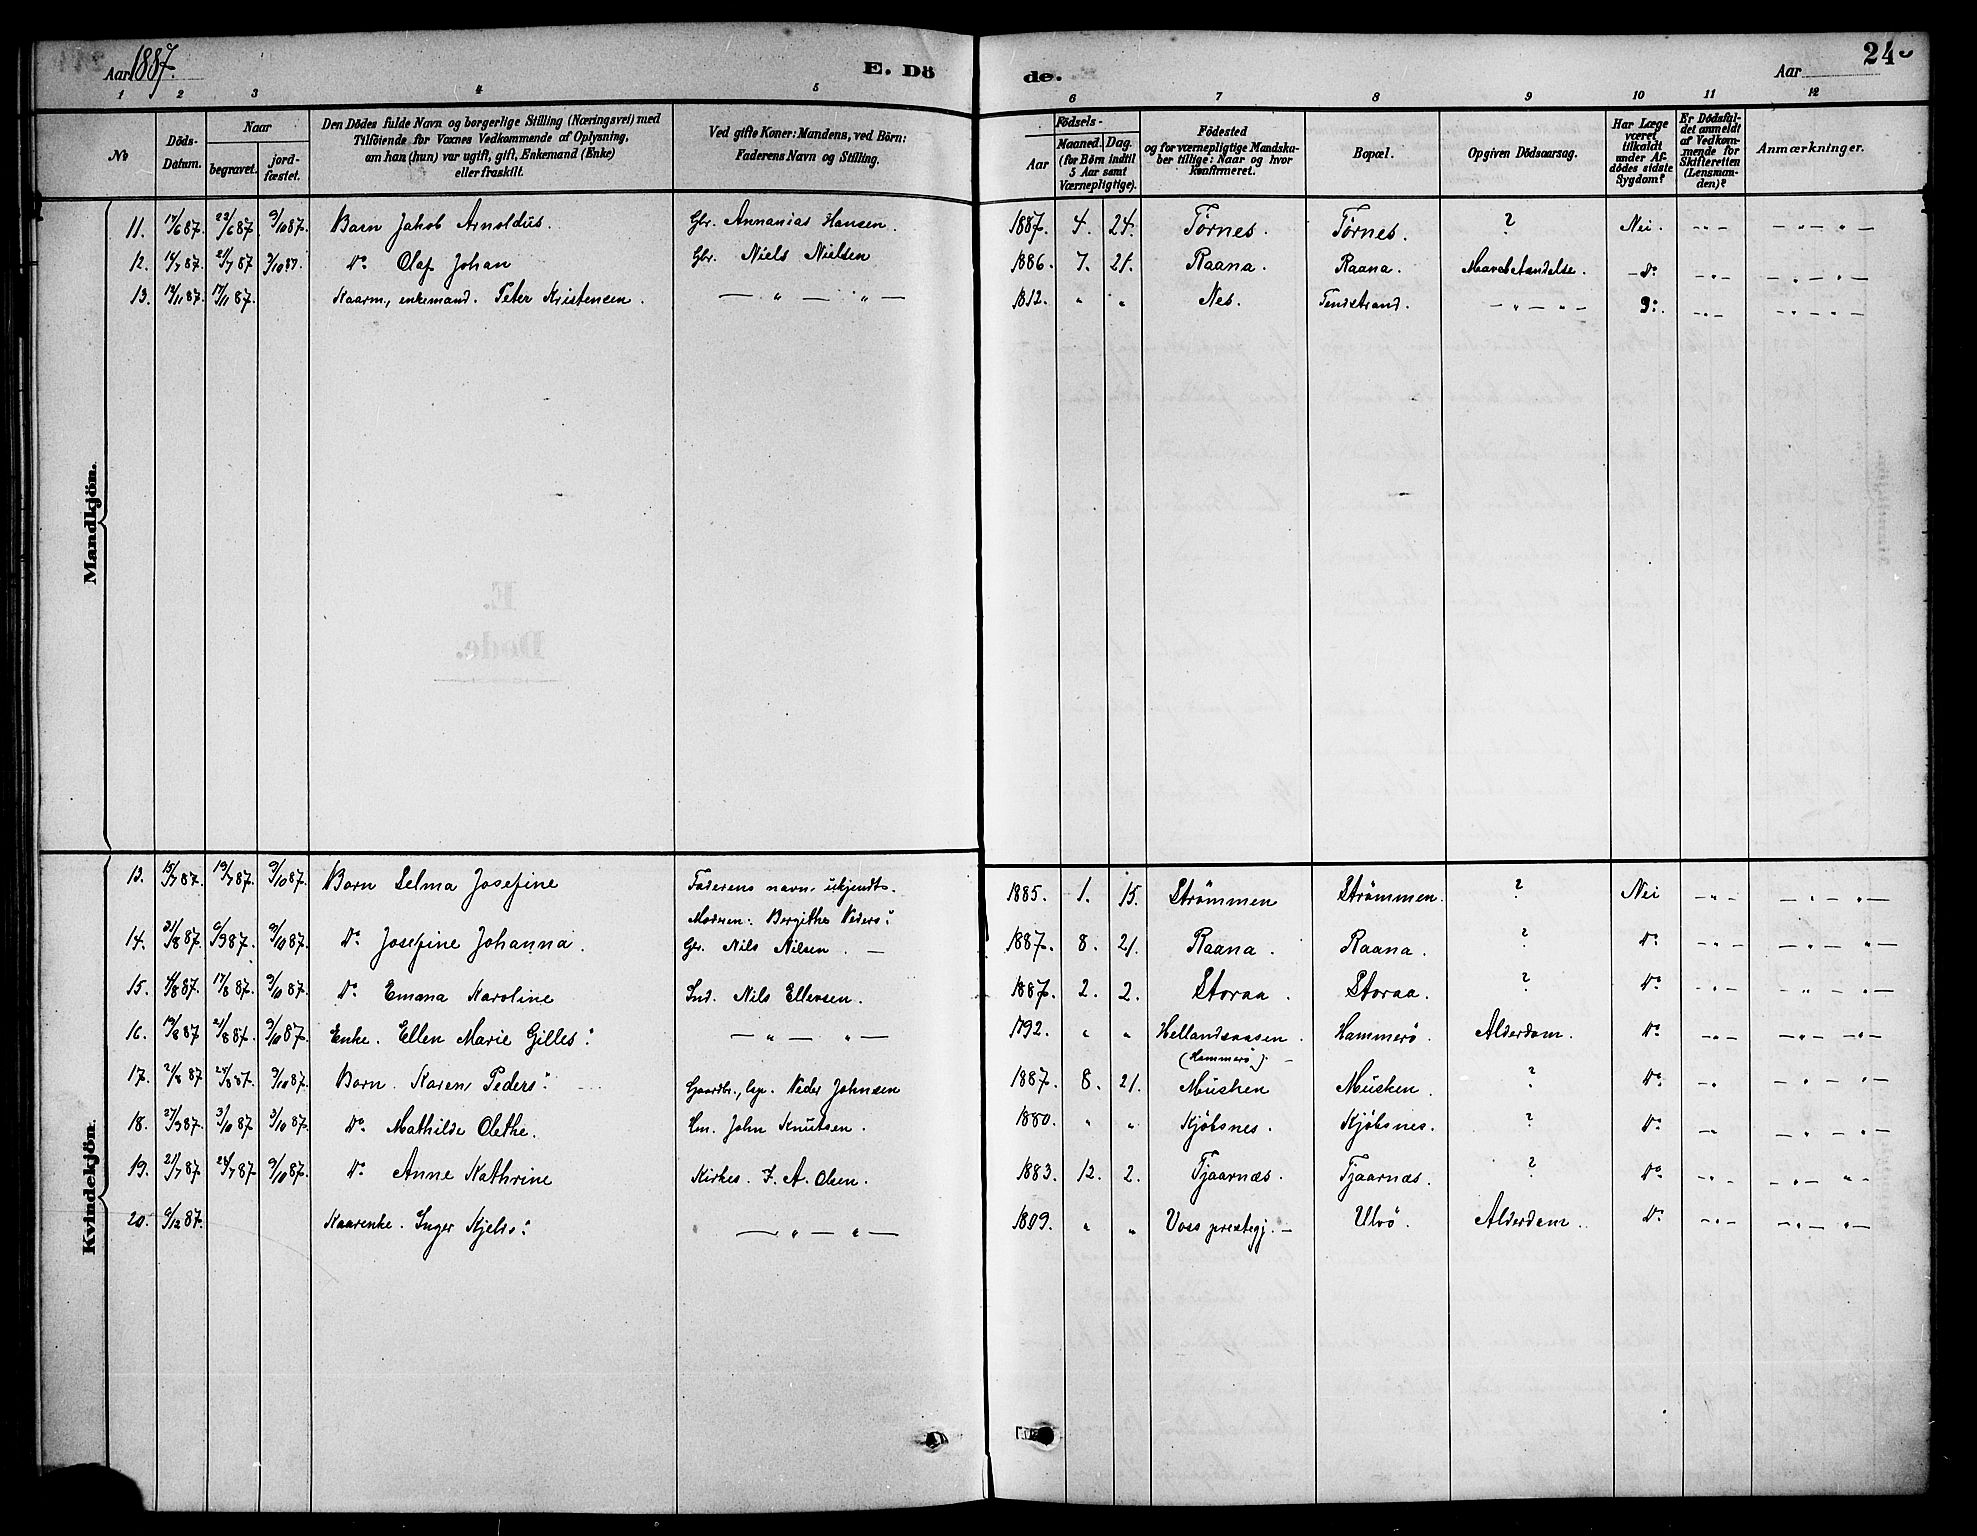 Aar 1887.
E. Dö
de.
Aar
24
1 2 3 4 5 6 7 8 9 10 11 12
No
Döds-Datum.
Naar
begravet.
jord-fæstet.
Den Dödes fulde Navn og borgerlige Stilling (Næringsvei) med
Tilföiende for Voxnes Vedkommende af Oplysning,
om han (hun) var ugift, gift, Enkemand (Enke)
eller fraskilt.
Ved gifte Koner: Mandens, ved Börn:
Faderens Navn og Stilling.
Födsels-
Aar
Maaned. Dag.
(for Börn indtil
5 Aar samt
Værnepligtige).
Födested
og for værnepligtige Mandska-
ber tillige: Naar og hvor
konfirmeret.
Bopæl.
Opgiven Dödsaarsag.
Har Læge
været
tilkaldt
under Af-
dödes sidste
Sygdom?
Er Dödsfal-
det anmeldt
af Vedkom-
mende for
Skifteretten
(Lensman-
den)?
Anmærkninger.
Mandkjön.
11. 17/6 87. 22/6 87 9/10 87. Barn Jakob Arnoldus. Gbr. Annanias Hansen. 1887. 4. 24. Tørnes. Tørnes. ? Nei.
12. 14/7 87. 21/7 87 9/10 87. Do Olaf Johan Gbr. Niels Nielsen 1886. 7. 21. Raana. Raana. Do
13. 13/11 87. 17/11 87. Kaarm, enkemand. Peter Kristensen. — „ — „ — 1812. „ „ Nes. Tendstrand. — „ — „ —
Kvindekjön.
13. 15/7 87. 19/7 87. 9/10 87. Barn Selma Josefine Faderens navn ukjendt.
Moderen: Bergithe Peders: 1885. 1. 15. Strømmen Strømmen. ? Nei
14. 31/8 87. 6/9 87. 9/10 87. Do Josefine Johanna. Gbr. Nils Nilsen. — 1887. 8. 21. Raana. Raana. ? Do
15. 4/8 87. 17/8 87. 9/10 87. Do Emma Karoline Ind. Nils Ellevsen. 1887. 2. 2. Storaa. Storaa. ? Do
16. 19/8 87 21/8 87. 9/10 87. Enke. Ellen Marie Gilles: — „ — „ — 1792. „ „ Hellandsaasen.
(Hammerø). — Hammerö. Alderdom. Do
17. 21/8 87 28/8 87. 9/10 87. Barn. Karen Peders: Gaardbr., Peder Johnsen 1887. 8. 21. Musken Musken. ? Do
18. 27/9 87. 3/10 87 3/10 87. Do Mathilde Olethe. Hm. John Knutsen. 1880. „ „ Kjöbsnes. Kjöbsnes. ? Do
19. 21/7 87. 28/7 87 9/10 87. Do Anne Kathrine Kirkes. J. A. Olsen. 1883. 12. 2. Tjaarnæs. Tjaarnæs. ? Do
20. 6/12 87. Kaarenke. Inger Kjels: — „ — „ — 1809. „ „ Voss prestegj. — Ulvö. Alderdom. Do